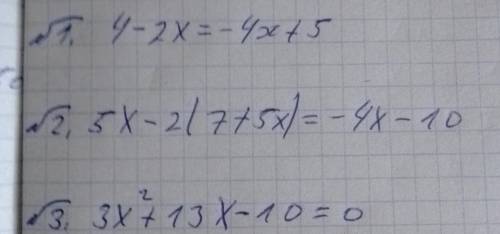 √1. 4-2x=-4x+5
√2. 5x-2(7+5x)=-4x-10
√3. 3x²+13x-10=0